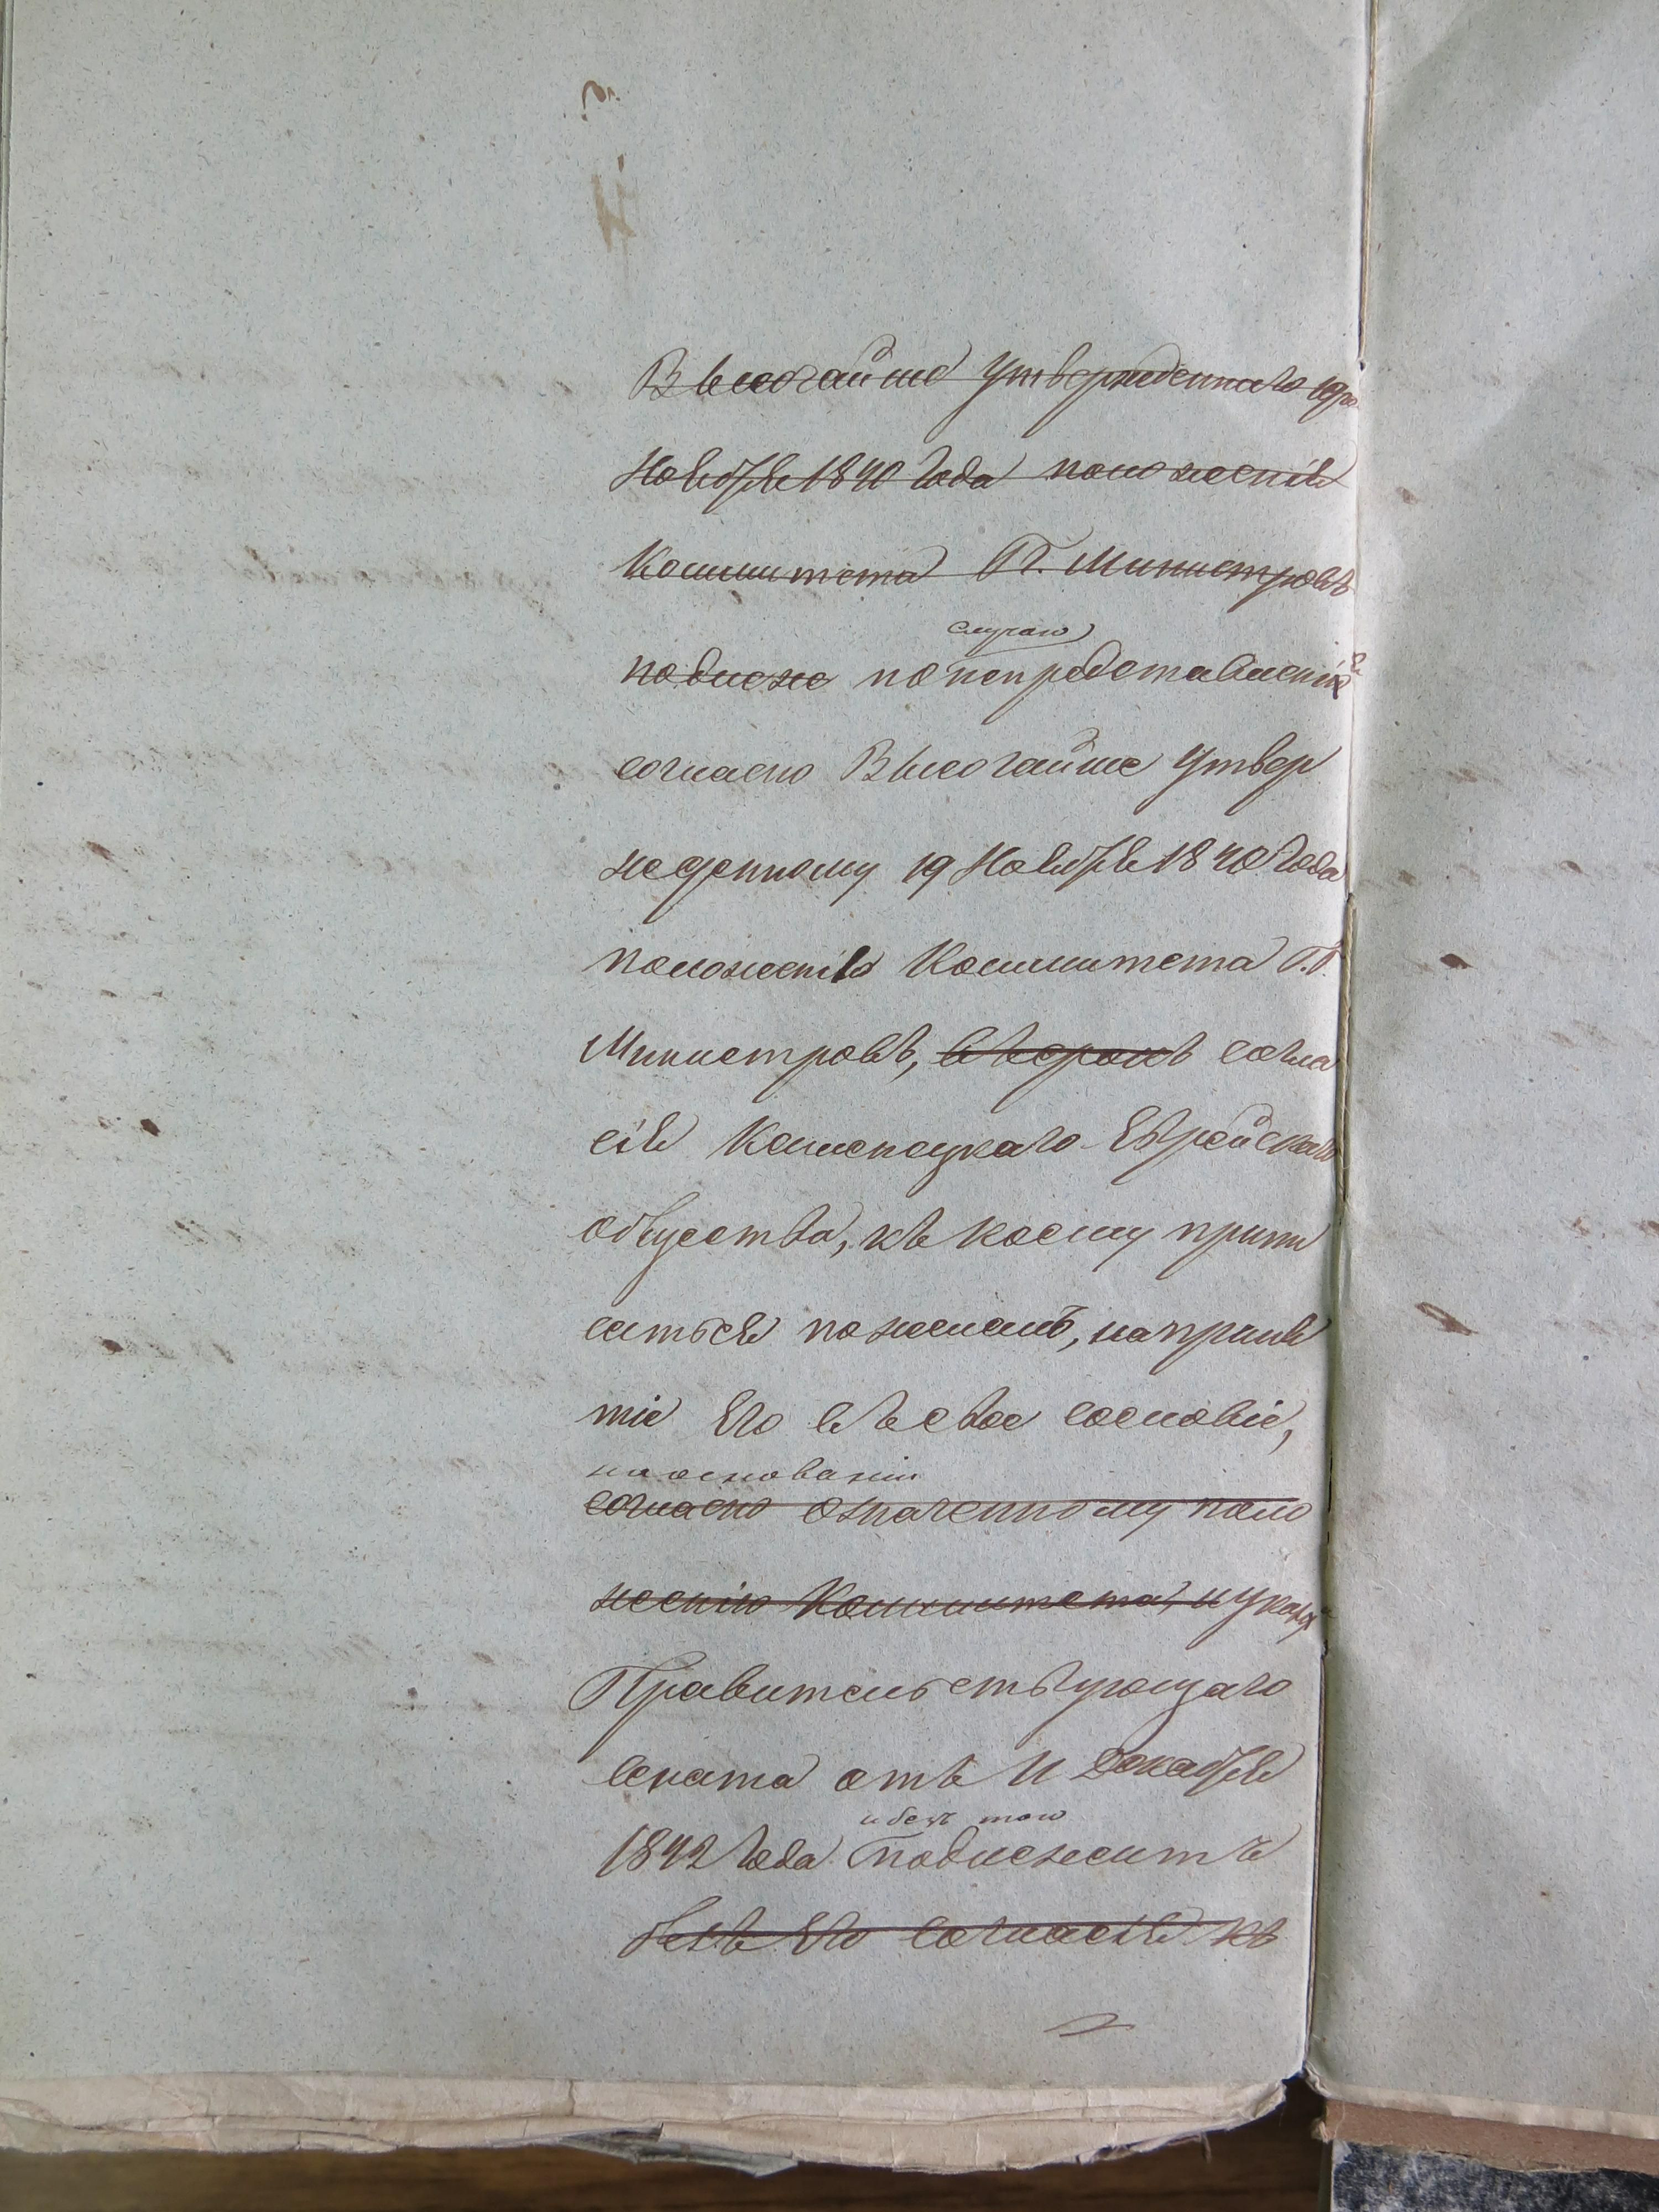 Высочайше утвержденнаго 19го
Ноября 1840 года положенія
Коммитета Гг. Министровъ
случаю
подлеже по непредставленія
согласно Высочайше утвер
жденному 19 Ноября 1840 года
положенію Коммитета Г.Г.
Министровъ, въ срокъ согла
сія Каменецкаго Еврейскаго
общества, къ коему припи
саться пожелалъ, на приня
тіе Его въ свое сословіе,
на основаніи
согласно означенному поло
женію Коммитета, и указа
Правительствующаго
Сената отъ 11 Декабря
и безъ того
1842 года подлежитъ
безъ Его согласія къ